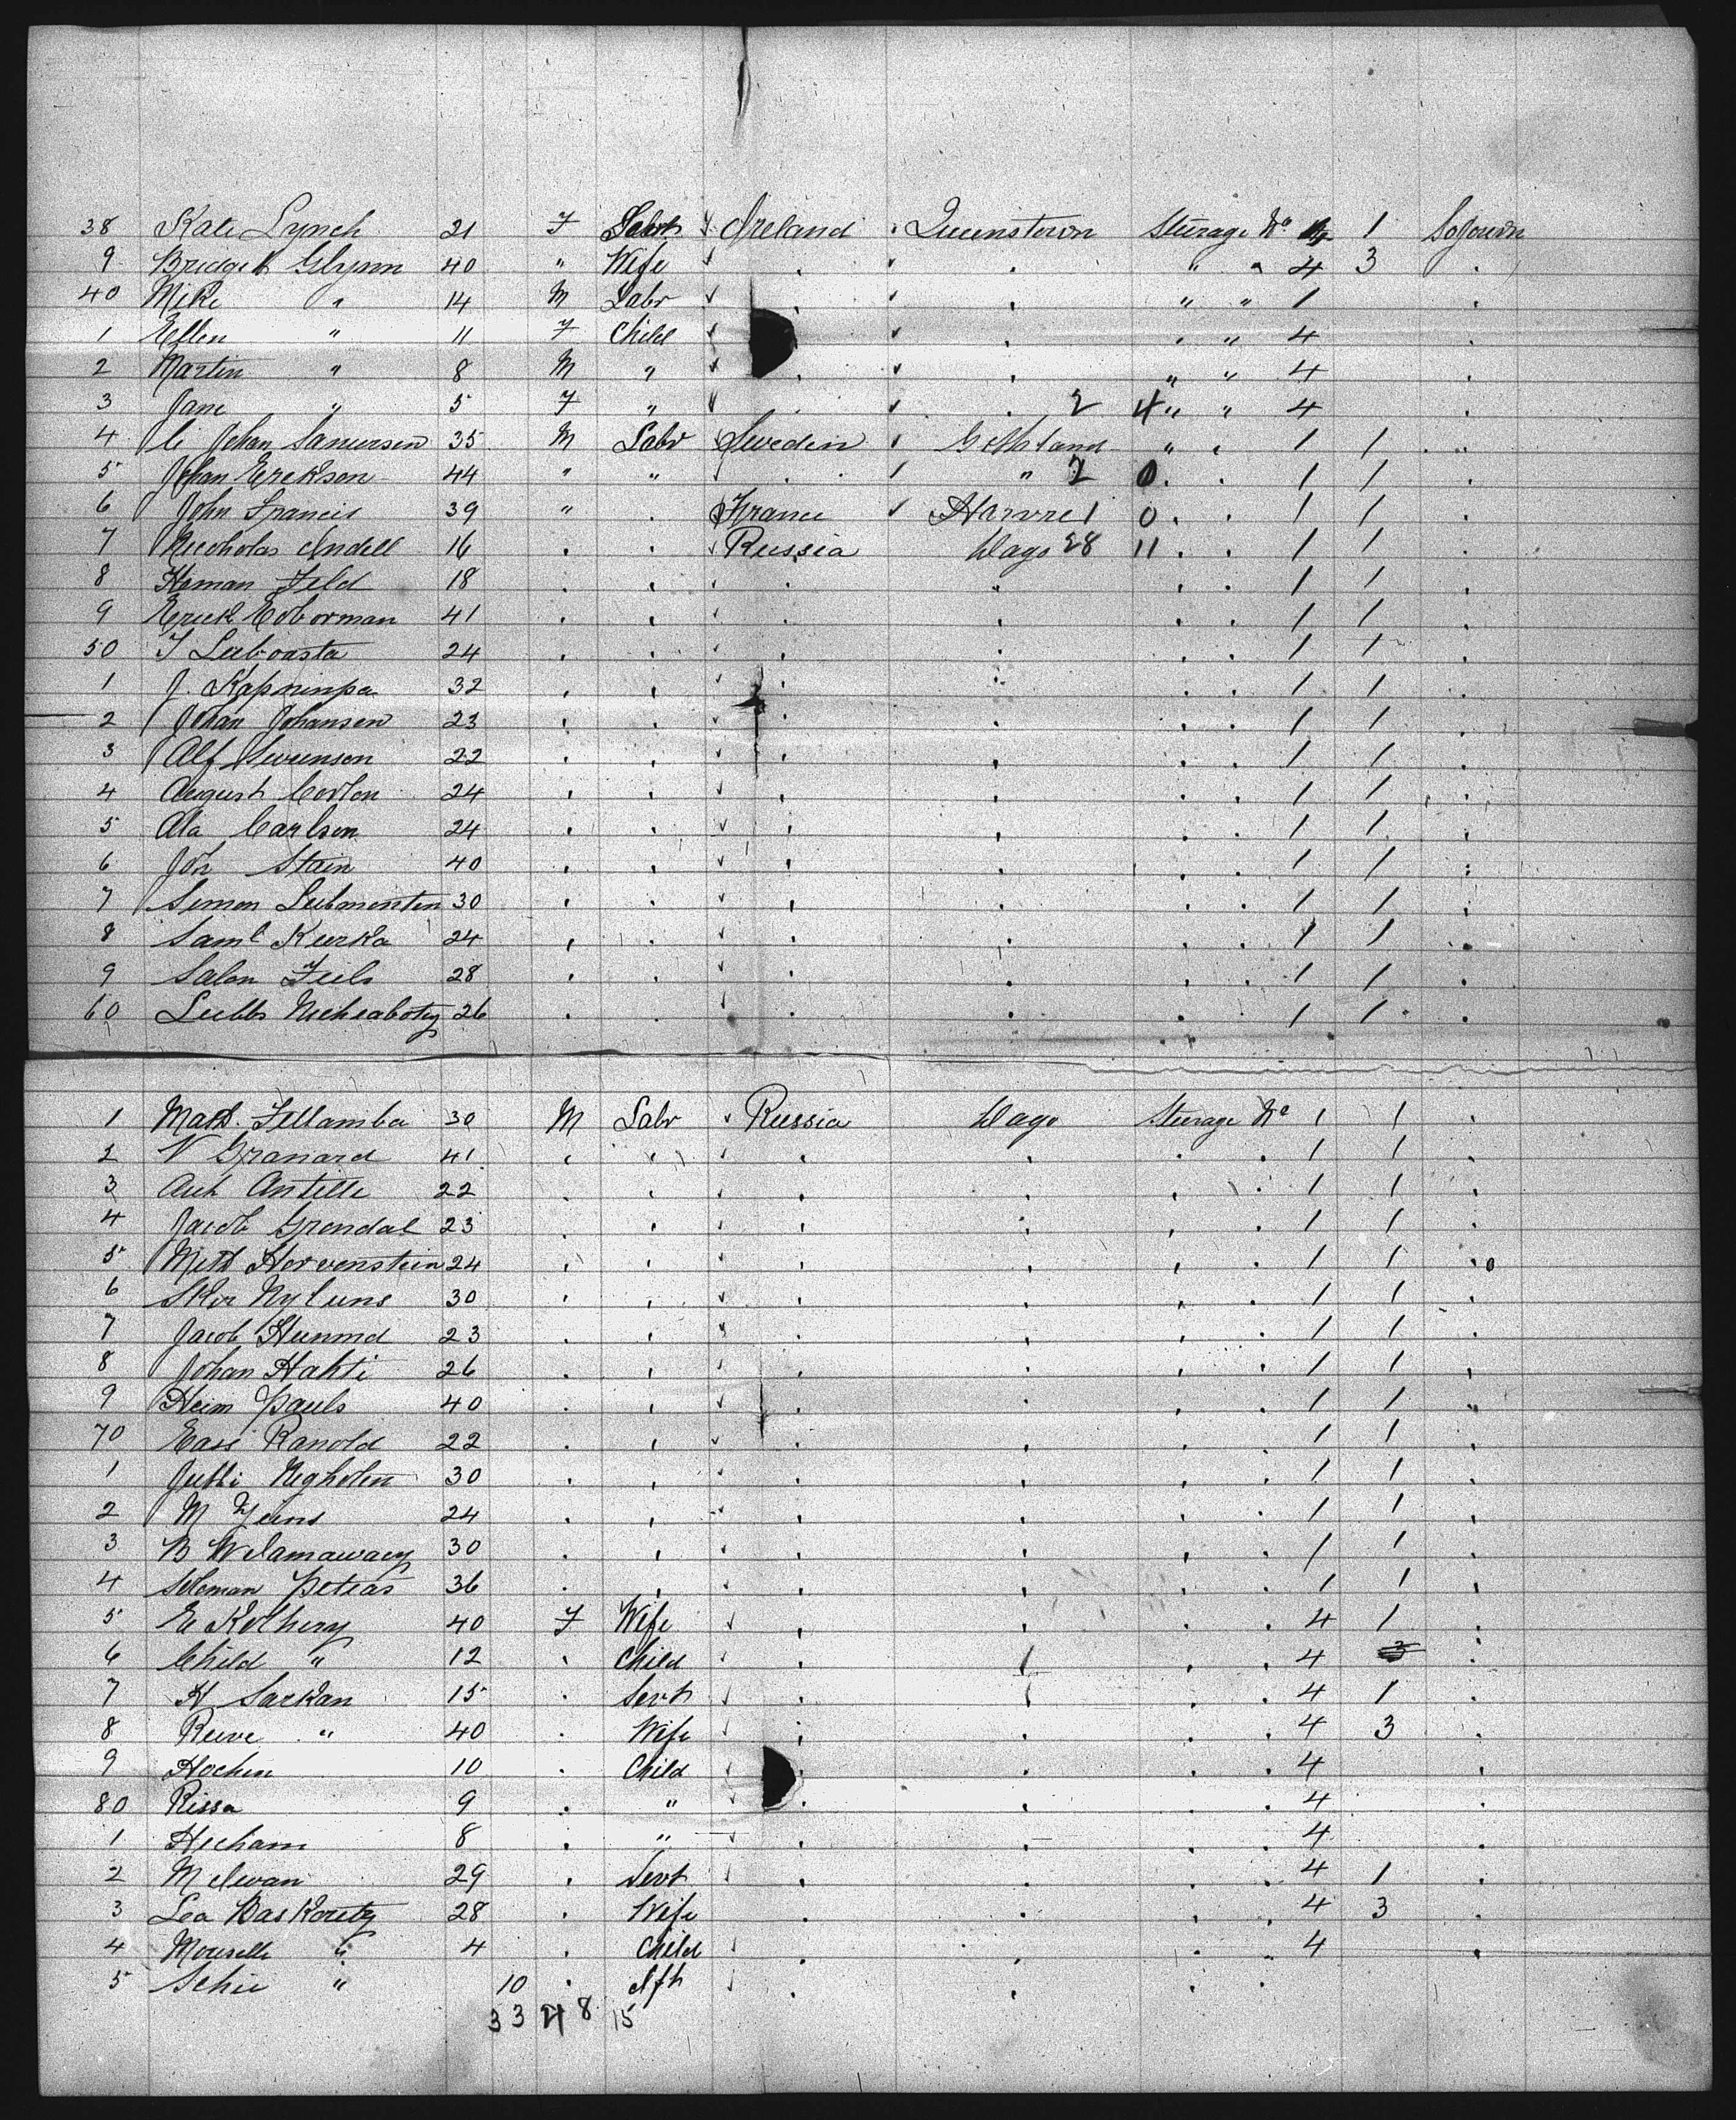 38 Kate Lynch 21 F Servt Ireland Queenstown Steerage No 4 1 Sojourn
9 Bridget Glynn 40 " Wife " " 4 3
40 Mike " 14 M Labr " " 1
1 Ellen " 11 F Child " " 4
2 Martin " 8 M " " " 4
3 Jane " 5 F " 2 4 " " 4
4 C Johan Sanursen 35 M Labr Sweden Gothland " 1 1 "
5 Johan Erekson 44 " " " 2 0 1 1
6 John Francis 39 " France Harvre 1 0 1 1
7 Nicoholas Andell 16 Russia Wago 28 11 1 1
8 Homan Feld 18 1 1
9 Erick Coborman 41 1 1
50 I Luboasta 24 1 1
1 J. Kapninpa 32 1 1
2 Johan Johansen 23 1 1
3 Alf Swenson 22 1 1
4 August Corlon 24 1 1
5 Ala Carlson 24 1 1
6 Joh Stain 40 1 1
7 Simon Lubmenten 30 1 1
8 Saml Kurka 24 1 1
9 Salon Fuls 28 1 1
60 Lubbs 26 1 1
1 Matt. Fellamba 30 M Labr Russia Wago Steerage No 1 1
2 V Granard 41 1 1
3 Ank Antelle 22 1 1
4 Jacob Grendal 23 1 1
5 Matt Horvenstein 24 1 1
6 Nyluns 30 1 1
7 Jacob 23 1 1
8 Johan Hahti 26 1 1
9 Heim Pauls 40 1 1
70 Eass Ranold 22 1 1
1 Negholen 30 1 1
2 M Yuns 24 1 1
3 B Welamawacy 30 1 1
4 Soloman Peteas 36 1 1
5 E Kothery 40 F Wife 4 1
6 Child " 12 Child 4 3
7 H Sarkan 15 Servt 4 1
8 Reeve " 40 Wife 4 3
9 Hochin 10 Child 4
80 Rissa 9 " 4
1 Hecham 8 " 4
2 M Iwan 29 Servt 4 1
3 Lea Baskoretz 28 Wife 4 3
4 Mouselle " 4 Child 4
5 Schie " 10 Ift
33 21 8 15